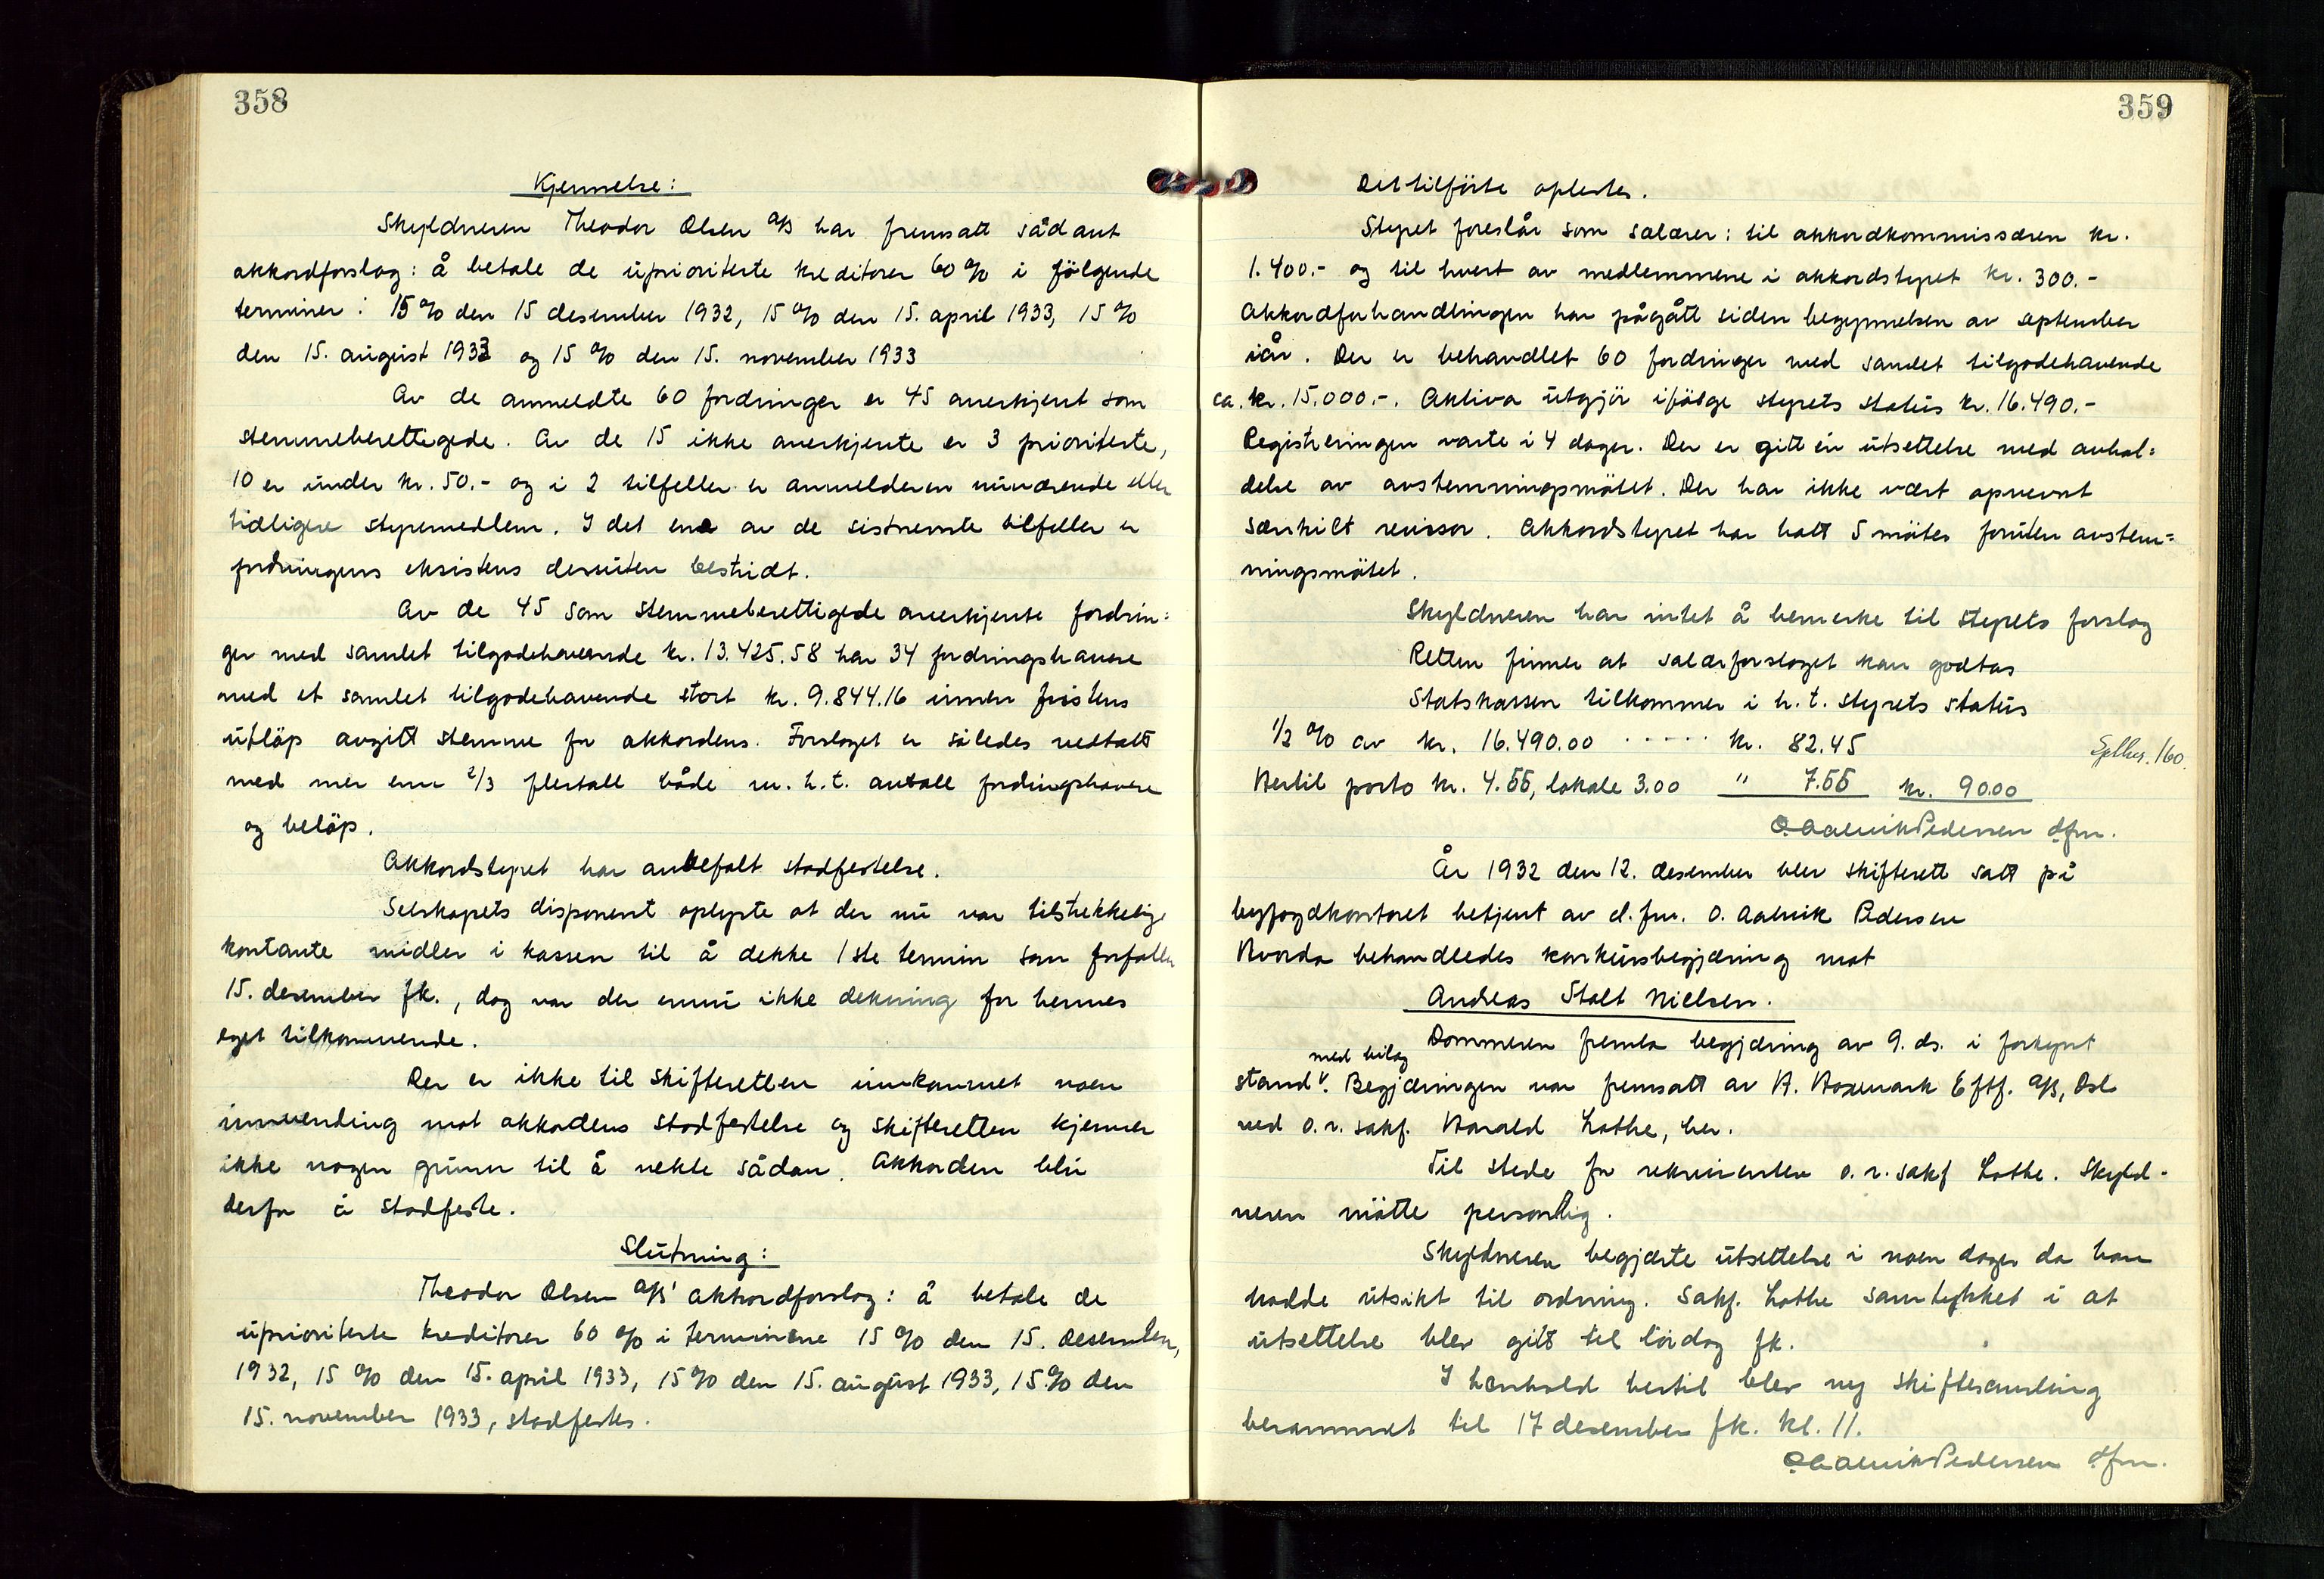 358
Kjennelse:
Skyldneren Theodor Olsen A/S har fremsatt sådant
akkordforslag: å betale de uprioriterte kreditorer 60 % i følgende
terminer: 15 % den 15 desember 1932, 15 % den 15. april 1933, 15 %
den 15. august 1933 og 15 % den 15. november 1933
Av de anmeldte 60 fordringer er 45 anerkjent som
stemmeberettigede. Av de 15 ikke anerkjente er 3 prioriterte,
10 er under kr. 50.- og i 2 tilfeller er anmelderen nuværende eller
tidligere styremedlem. I det ene av de sistnevnte tilfeller er
fordringens eksistens dessuten bestridt.
Av de 45 som stemmeberettigede anerkjente fordrin=
ger med samlet tilgodehavende kr. 13.425.58 har 34 fordringshavere
med et samlet tilgodehavende stort kr. 9.844.16 innen fristens
utløp avgitt stemme for akkordens. Forslaget er således vedtatt
med mer enn 2/3 flertall både m. h. t. antall fordringshavere
og beløp.
Akkordstyret har anbefalt stadfestelse.
Selskapets disponent oplyste at der nu var tilstrekkelige
kontante midler i kassen til å dekke 1ste termin som forfaller
15. desember fk., dog var der ennu ikke dekning for hennes
eget tilkommende.
Der er ikke til skifteretten innkommet noen
innvending mot akkordens stadfestelse og skifteretten kjenner
ikke nogen grunn til å nekte sådan. Akkorden blir
derfor å stadfeste.
Slutning:
Theodor Olsen A/S' akkordforslag: å betale de
uprioriterte kreditorer 60 % i terminene 15 % den 15. desember,
1932, 15 % den 15. april 1933, 15 % den 15. august 1933, 15 % den
15. november 1933, stadfestes.
359
Det tilførte oplestes.
Styret foreslår som salærer: til akkordkommissæren kr.
1.400.- og til hvert av medlemmene i akkordstyret kr. 300.-
Akkordforhandlingen har pågått siden begynnelsen av september
iår. Der er behandlet 60 fordringer med samlet tilgodehavende
ca. kr. 15.000.-. Aktiva utgjør ifølge styrets status kr. 16.490.-
Registreringen varte i 4 dager. Der er gitt én utsettelse med avhol=
delse av avstemningsmøtet. Der har ikke vært opnevnt
særskilt revisor. Akkordstyret har hatt 5 møter foruten avstem=
ningsmøtet.
Skyldneren har intet å bemerke til styrets forslag
Retten finner at salærforslaget kan godtas
Statskassen tilkommer i h. t. styrets status
1/2 % av kr. 16.490.00 ..... kr. 82.45
Hertil porto kr. 4.55, lokale 3.00 " 7.55 kr. 90.00
O. Aalvik Pedersen dfm.
År 1932 den 12. desember blev skifterett satt på
byfogdkontoret betjent av d. fm. O. Aalvik Pedersen
Hvorda behandledes konkursbegjæring mot
Andreas Stolt Nielsen.
Dommeren fremla begjæring av 9. ds. i forkynt
med bilag
stand v. Begjæringen var fremsatt av H. Horemark Eftf. A/S, Oslo
ved o. r. sakf. Harald Lothe, her.
Til stede for rekvirenten o. r. sakf Lothe. Skyld-
neren møtte personlig.
Skyldneren begjærte utsettelse i noen dager da han
hadde utsikt til ordning. Sakf. Lothe samtykket i at
utsettelse blev gitt til lørdag fk.
I henhold hertil blev ny skiftesamling
berammet til 17 desember fk. kl. 11.
O. Aalvik Pedersen dfm.